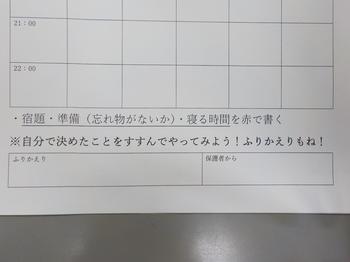 21:00
22:00
・宿題・準備（忘れ物がないか）・寝る時間を赤で書く
※自分で決めたことをすすんでやってみよう！ふりかえりもね！
ふりかえり
保護者から